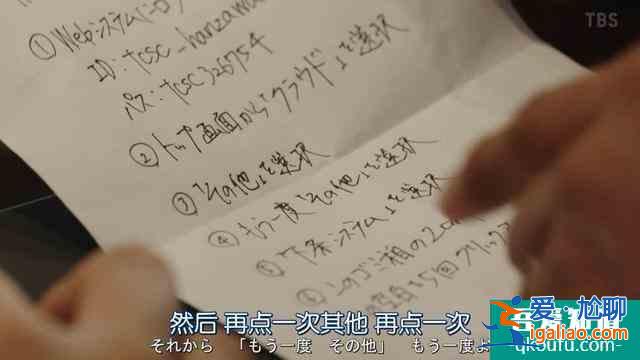 TBS
① Webシステム(ニロ
ID:tcsc_hanzawa
パス:tcsc326754
② トップ画面から「クラウド」を選択
③ 「その他」を選択
④ もう一度「その他」を選択
⑤ 「下条システム」を選択
⑥ このゴミ箱の2
を5回クリック
然后 再点一次其他 再点一次
それから 「もう一度 その他」 もう一度よ
爱尬聊
qk5uru.com